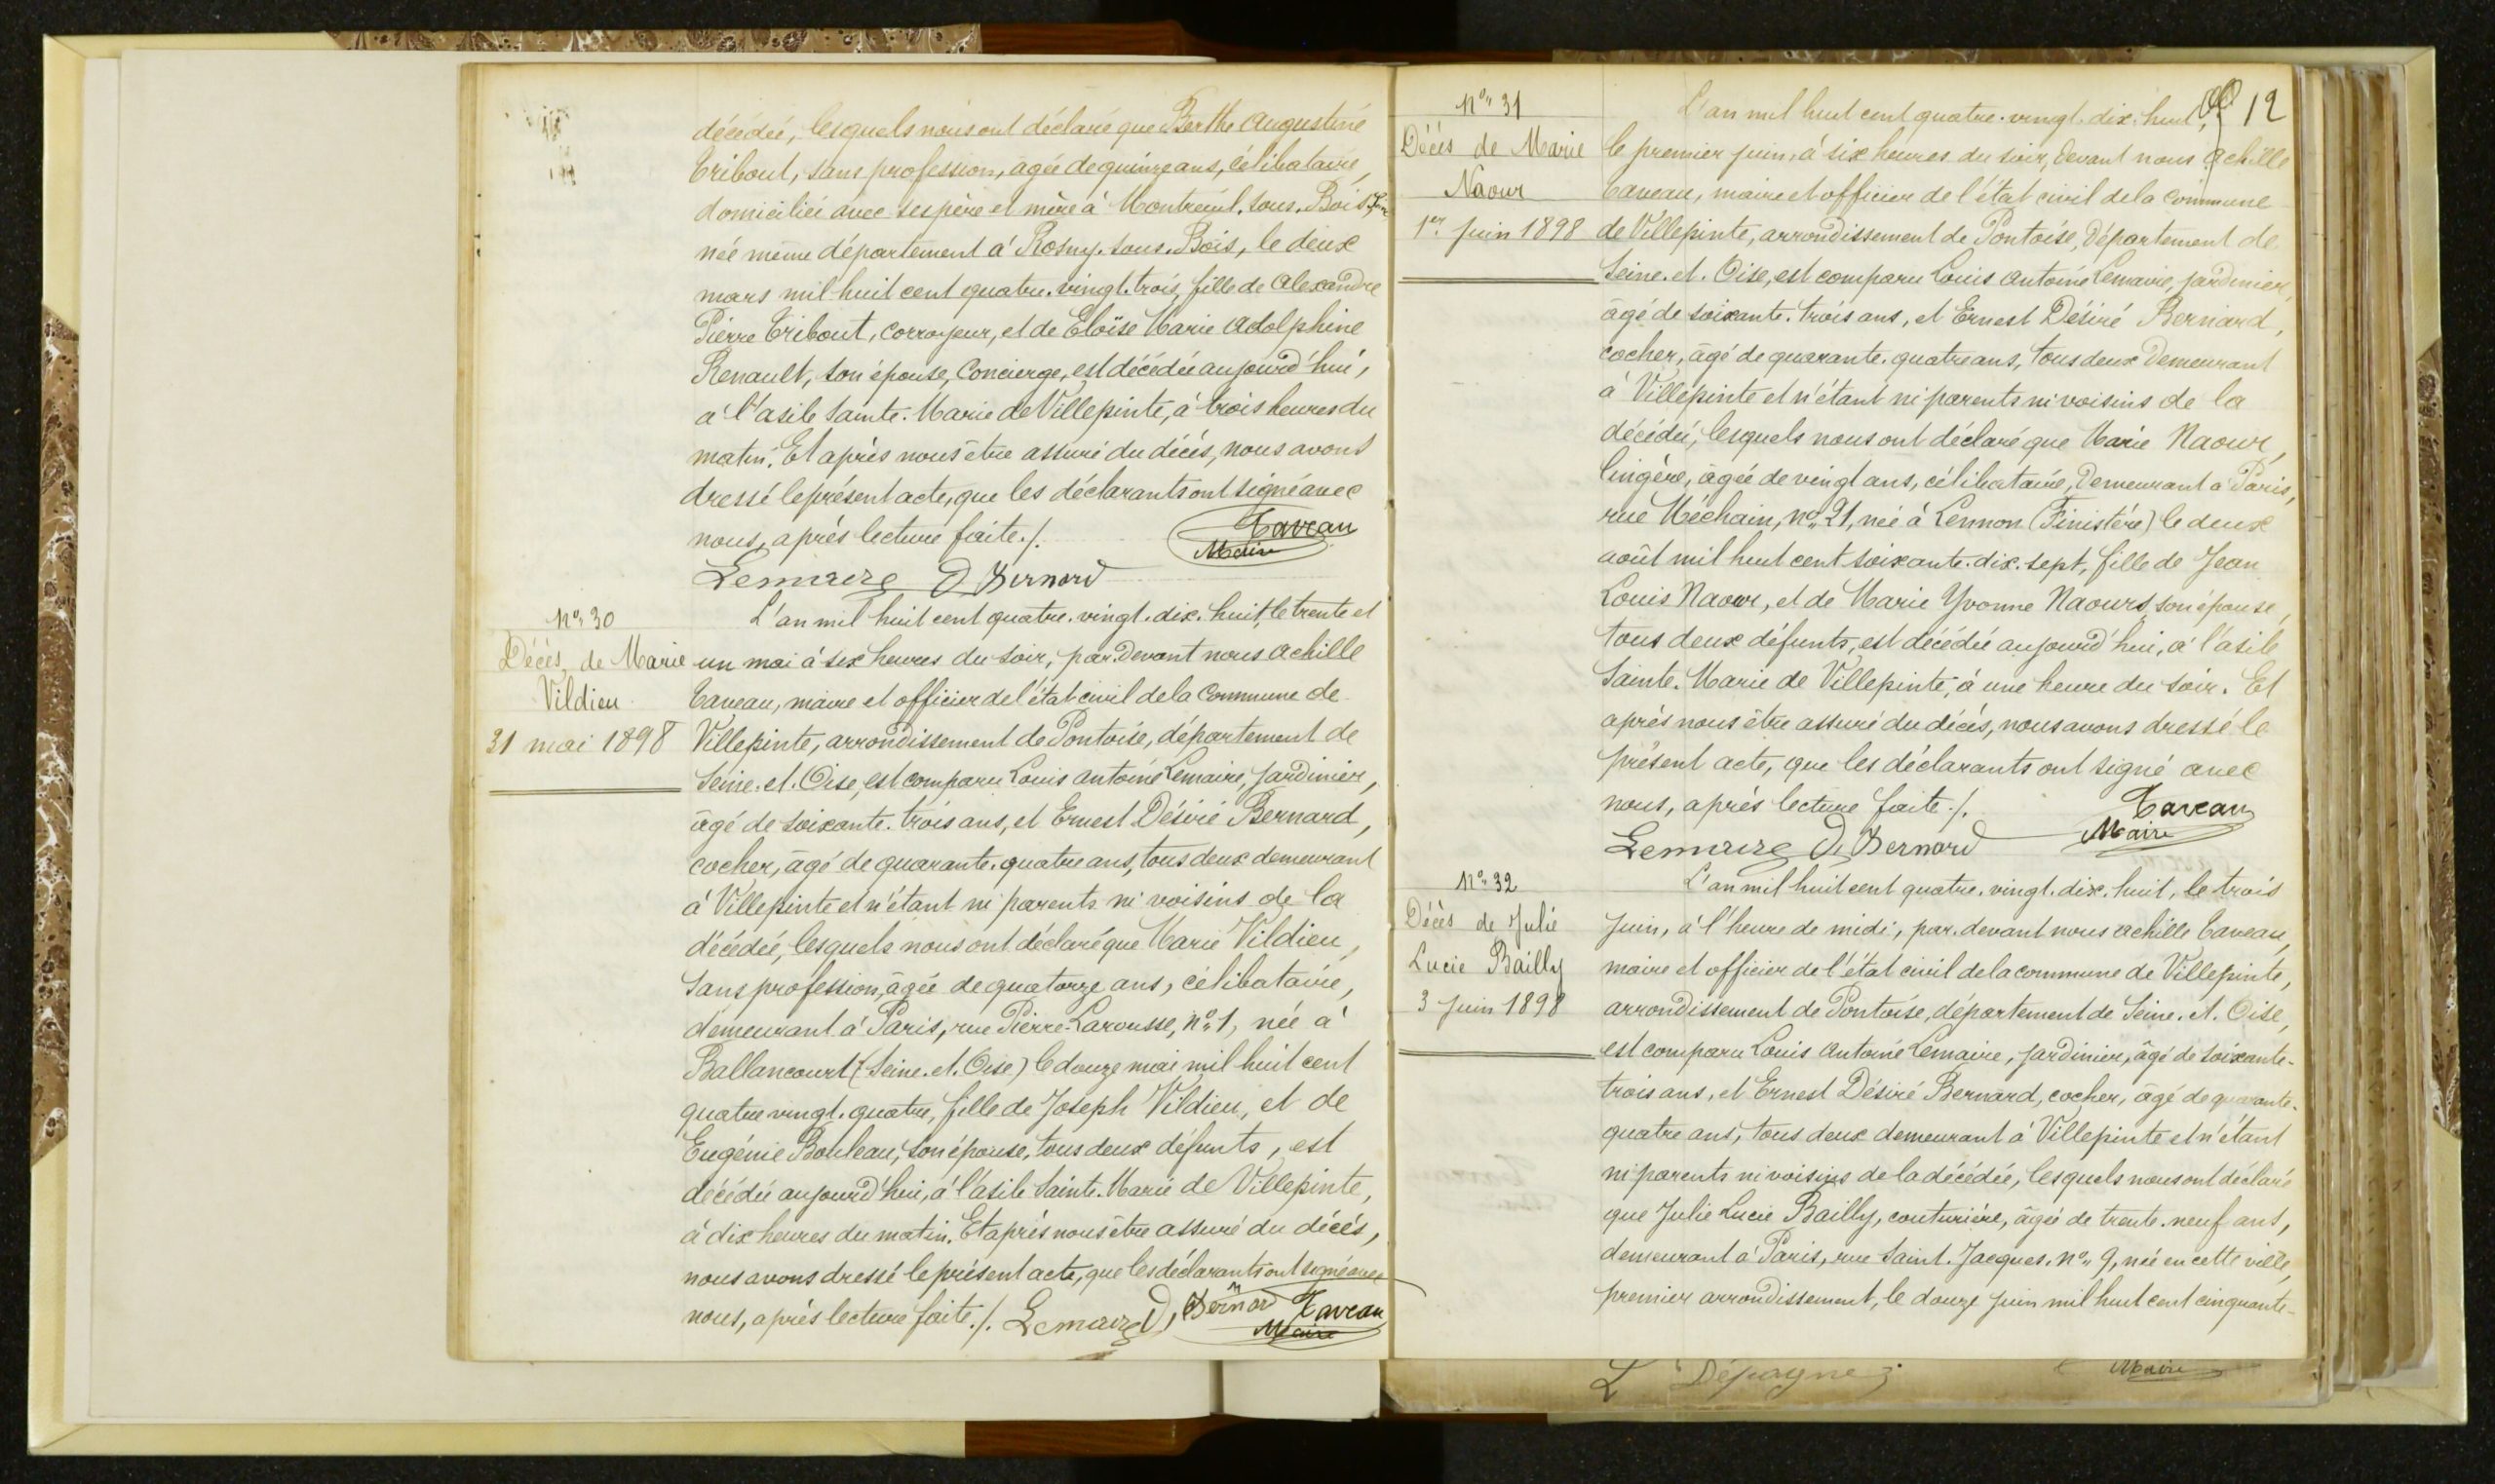 décédée, lesquels nous ont déclaré que Berthe Augustine
Tribout, sans profession, âgée de quinze ans, célibataire,
domiciliée avec ses père et mère à Montreuil. sous. Bois
née même département à Rosny. sous. Bois, le deux
mars mil huit cent quatre. vingt. trois, fille de Alexandre
Pierre Tribout, corroyeur, et de Eloïse Marie Adolphine
Renault, son épouse, Concierge, est décédée aujourd'hui,
à l'asile Sainte. Marie de Villepinte, à trois heures du
matin. Et après nous être assuré du décès, nous avons
dressé le présent acte, que les déclarants ont signé avec
nous, après lecture faite ./.
Taveau
Maire
Lemaire D Bernard
No. 30
Décès de Marie
Vildieu
31 mai 1898
L'an mil huit cent quatre. vingt. dix. huit, le trente et
un mai à six heures du soir, par. devant nous Achille
Taveau, maire et officier de l'état civil de la Commune de
Villepinte, arrondissement de Pontoise, département de
Seine. et. Oise, est comparu Louis Antoine Lemaire, jardinier,
âgé de soixante. trois ans, et Ernest Désiré Bernard,
cocher, âgé de quarante. quatre ans, tous deux demeurant
à Villepinte et n'étant ni parents ni voisins de la
décédée, lesquels nous ont déclaré que Marie Vildieu,
sans profession, âgée de quatorze ans, célibataire,
demeurant à Paris, rue Pierre-Larousse, no. 1, née à
Ballancourt (Seine. et. Oise) le douze mai mil huit cent
quatre vingt. quatre, fille de Joseph Vildieu, et de
Eugénie Bouleau, son épouse, tous deux défunts, est
décédée aujourd'hui, à l'asile Sainte. Marie de Villepinte,
à dix heures du matin. Et après nous être assuré du décès,
nous avons dressé le présent acte, que les déclarants ont signé avec
nous, après lecture faite ./. Lemaire D, Bernard Taveau
Maire
12
No. 31
Décès de Marie
Naour
1er juin 1898
L'an mil huit cent quatre. vingt. dix. huit,
le premier juin, à six heures du soir, devant nous Achille
Taveau, maire et officier de l'état civil de la commune
de Villepinte, arrondissement de Pontoise, Département de
Seine. et. Oise, est comparu Louis Antoine Lemaire, jardinier,
âgé de soixante. trois ans, et Ernest Désiré Bernard,
cocher, âgé de quarante. quatre ans, tous deux Demeurant
à Villepinte et n'étant ni parents ni voisins de la
décédée, lesquels nous ont déclaré que Marie Naour,
lingère, âgée de vingt ans, célibataire, Demeurant à Paris,
rue Méchain, no. 21, née à Lennon (Finistère) le deux
août mil huit cent soixante. dix. sept, fille de Jean
Louis Naour, et de Marie Yvonne Naours, son épouse,
tous deux défunts, est décédée aujourd'hui, à l'asile
Sainte. Marie de Villepinte, à une heure du soir. Et
après nous être assuré du décès, nous avons dressé le
présent acte, que les déclarants ont signé avec
nous, après lecture faite ./.
Taveau
Maire
Lemaire D Bernard
No. 32
Décès de Julie
Lucie Bailly
3 juin 1898
L'an mil huit cent quatre. vingt. dix. huit, le trois
juin, à l'heure de midi, par. devant nous Achille Taveau,
maire et officier de l'état civil de la commune de Villepinte,
arrondissement de Pontoise, département de Seine. et. Oise,
est comparu Louis Antoine Lemaire, jardinier, âgé de soixante-
trois ans, et Ernest Désiré Bernard, cocher, âgé de quarante-
quatre ans, tous deux demeurant à Villepinte et n'étant
ni parents ni voisins de la décédée, lesquels nous ont déclaré
que Julie Lucie Bailly, couturière, âgée de trente. neuf ans,
demeurant à Paris, rue Saint. Jacques, no. 9, née en cette ville,
premier arrondissement, le douze juin mil huit cent cinquante-
L Dépagne
Maire